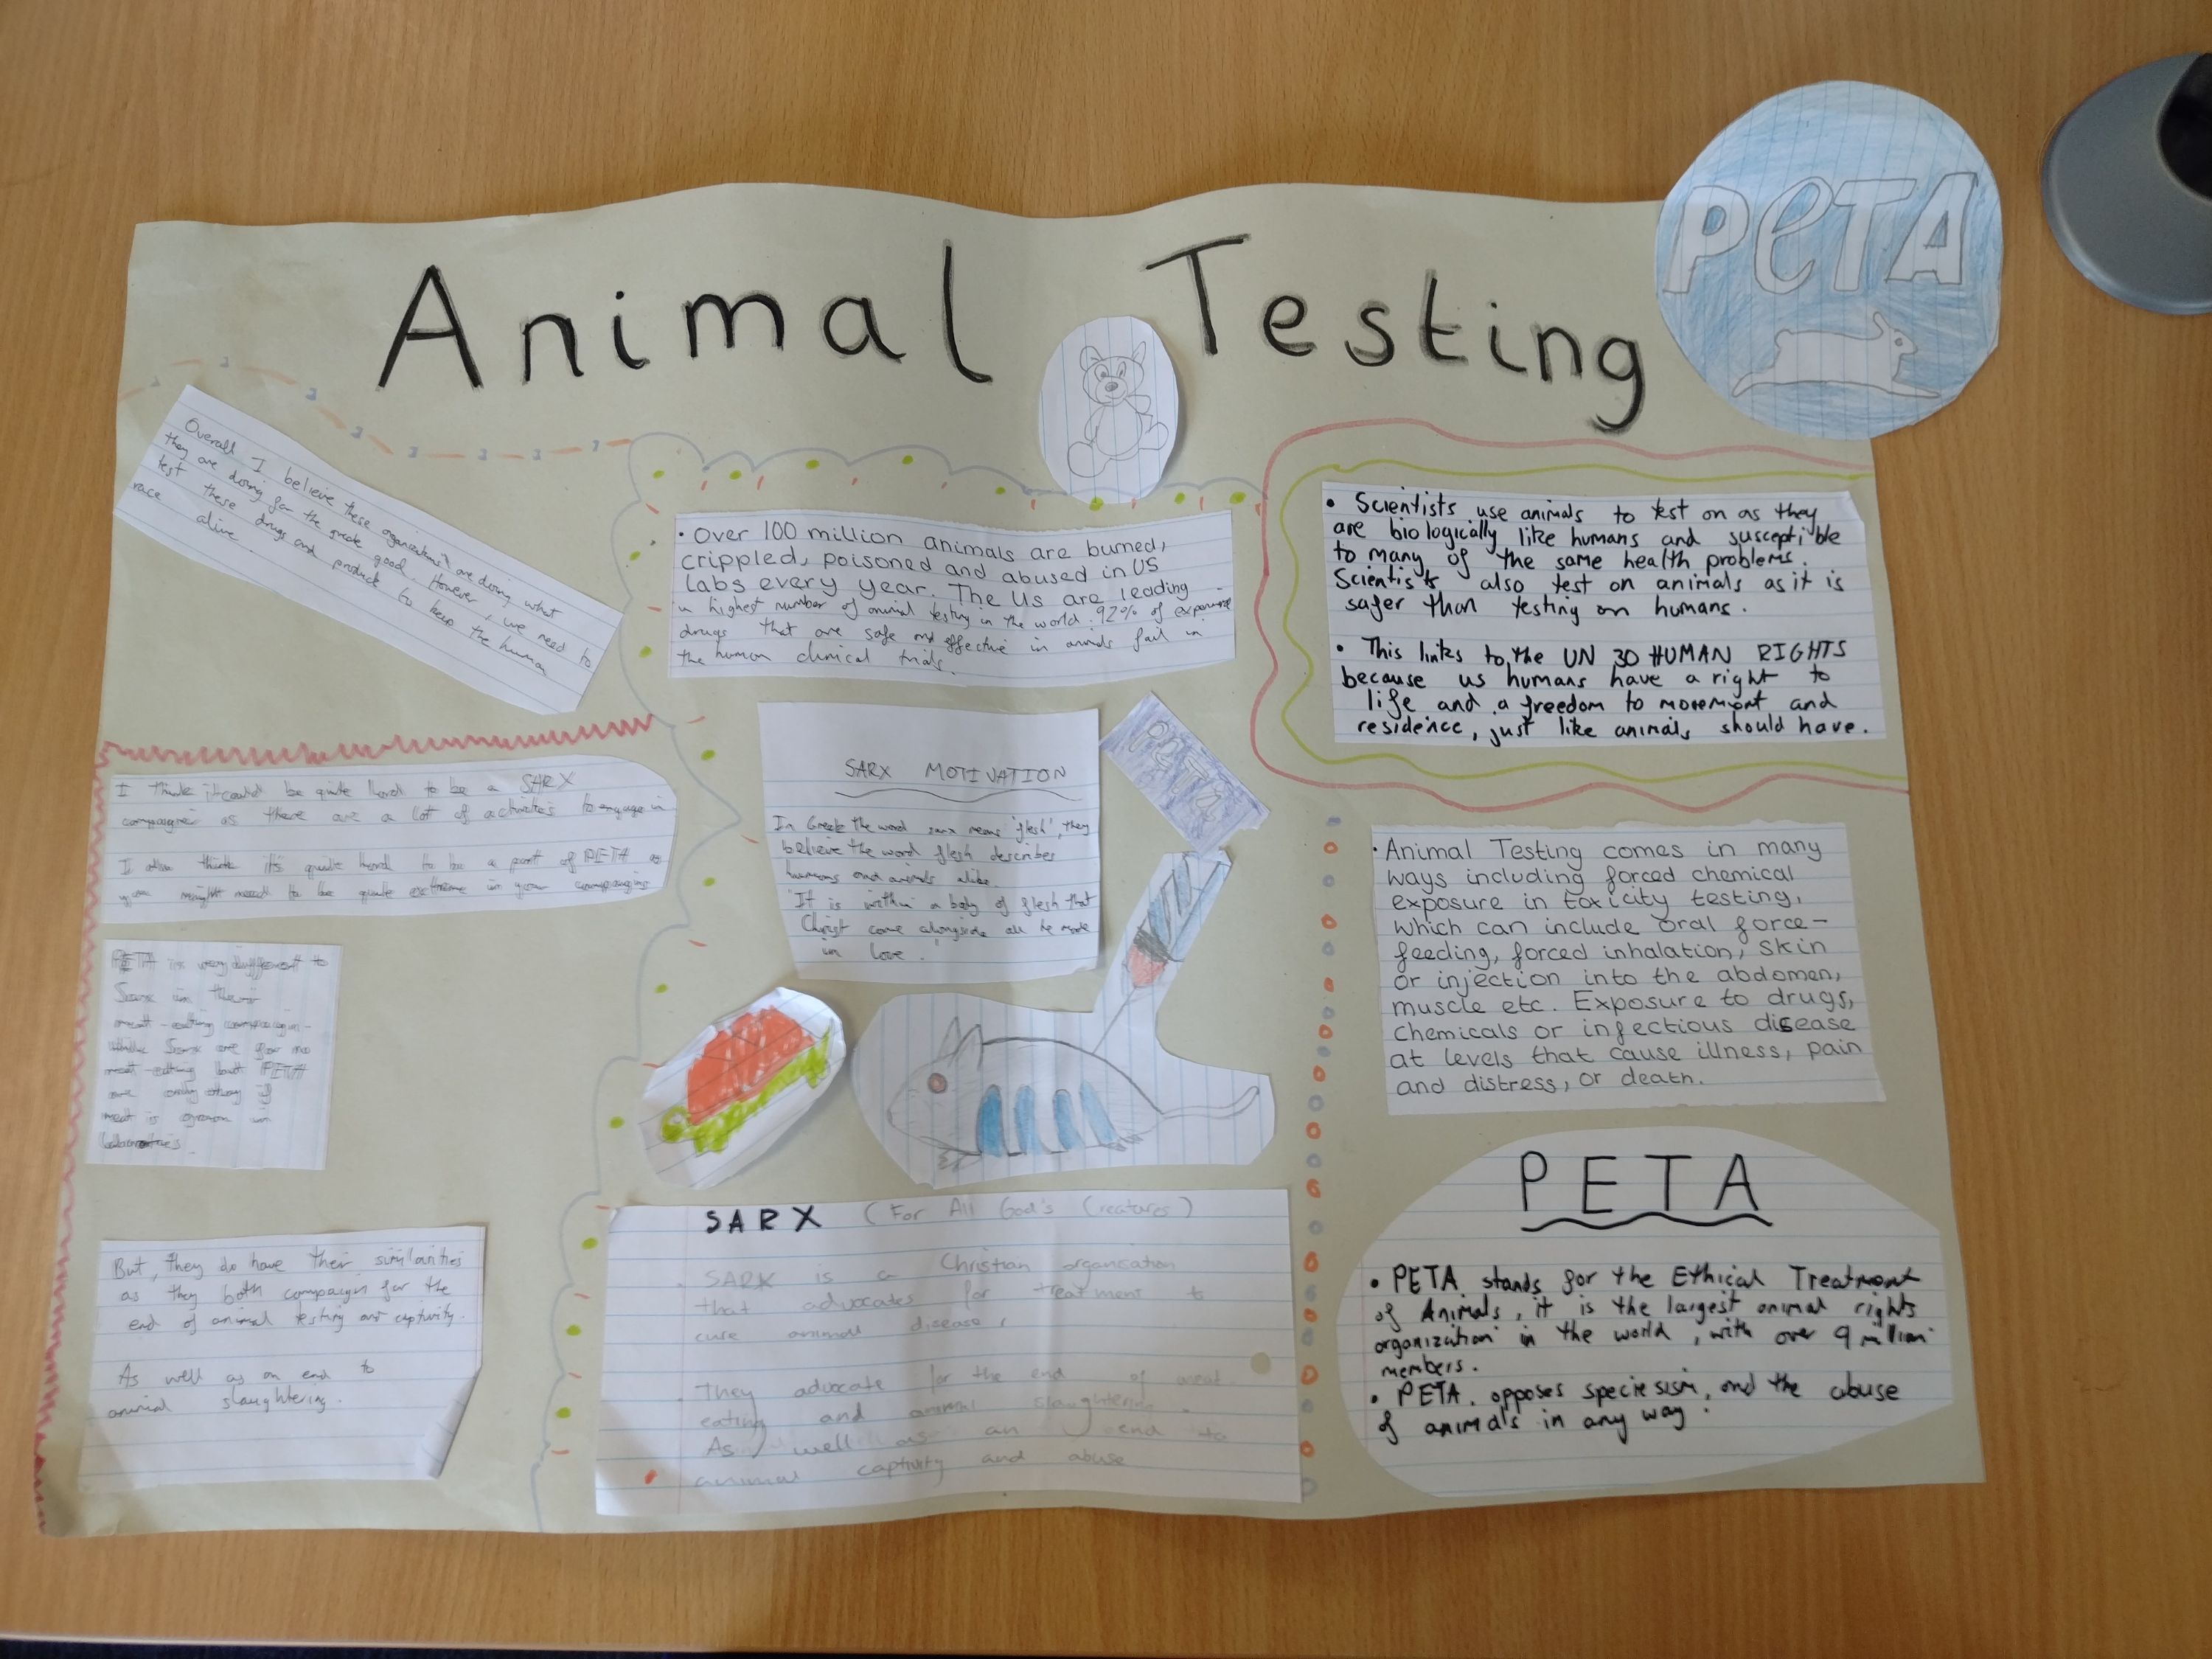 Animal Testing
PETA
Overall I believe these organizations are doing what
they are doing for the greate good. However, we need to
test these drugs and products to keep the human
race alive.
• Over 100 million animals are burned,
crippled, poisoned and abused in US
labs every year. The US are leading
in highest number of animal testing in the world. 92% of
drugs that are safe and effective in animals fail in
the human clinical trials.
• Scientists use animals to test on as they
are biologically like humans and susceptible
to many of the same health problems.
Scientists also test on animals as it is
safer than testing on humans.
• This links to the UN 30 HUMAN RIGHTS
because us humans have a right to
life and a freedom to movement and
residence, just like animals should have.
I think it could be quite hard to be a SARX
as there are a lot of activities to engage in
I also think it's quite hard to be a part of PETA as
you might need to be quite extreme in your
SARX MOTIVATION
In Greek the word sarx means 'flesh', they
believe the word flesh describes
humans and animals alike.
'It is within a body of flesh that
Christ come alongside all he made
in love.'
PETA
PETA is very different to
Sarx in their
meat-eating
Sarx are for no
meat-eating but PETA
are only okay if
meat is grown in
• Animal Testing comes in many
ways including forced chemical
exposure in toxicity testing,
which can include oral force-
feeding, forced inhalation, skin
or injection into the abdomen,
muscle etc. Exposure to drugs,
chemicals or infectious disease
at levels that cause illness, pain
and distress, or death.
But, they do have their similarities
as they both campaign for the
end of animal testing and captivity.
As well as an end to
animal slaughtering.
SARX (For All God's Creatures)
• SARX is a Christian organisation
that advocates for treatment to
cure animal disease,
• They advocate for the end of meat
eating and animal slaughtering.
As well as an end to
animal captivity and abuse
PETA
• PETA stands for the Ethical Treatment
of Animals, it is the largest animal rights
organization in the world, with over 9 million
members.
• PETA. opposes speciesism, and the abuse
of animals in any way.